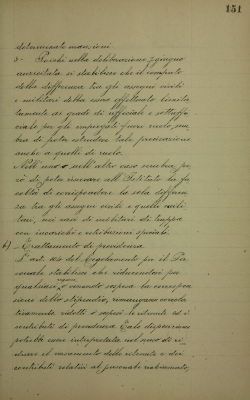 151
determinate mansioni
3- Poichè nella deliberazione 7 giugno
anzicitata si stabilisce che il computo
della differenza tra gli assegni civili
e militari debba essere effettuato limita
tamente ai gradi di ufficiali e sottuffi
ciali per gli impiegati fuori ruolo, sem
bra di poter estendere tale precisazione
anche a quelli di ruolo.
Nell'uno e nell'altro caso sembra pe
rò di poter riservare all'Istituto la fa
coltà di corrispondere la sola differen
za tra gli assegni civili e quelli mili
tari, nei casi di militari di truppa
con incarichi e retribuzioni speciali.
b) Trattamento di previdenza
L'art. del Regolamento per il Per
sonale stabilisce che riducendosi per
qualsiasi o venendo sospesa la correspon
sione dello stipendio, rimangono correla
tivamente ridotti o sospesi le ritenute ed i
contributi di previdenza. Tale disposizione
potrebbe essere interpretata nel senso di e-
il versamento delle ritenute e dei
contributi relativi al personale richiamato,